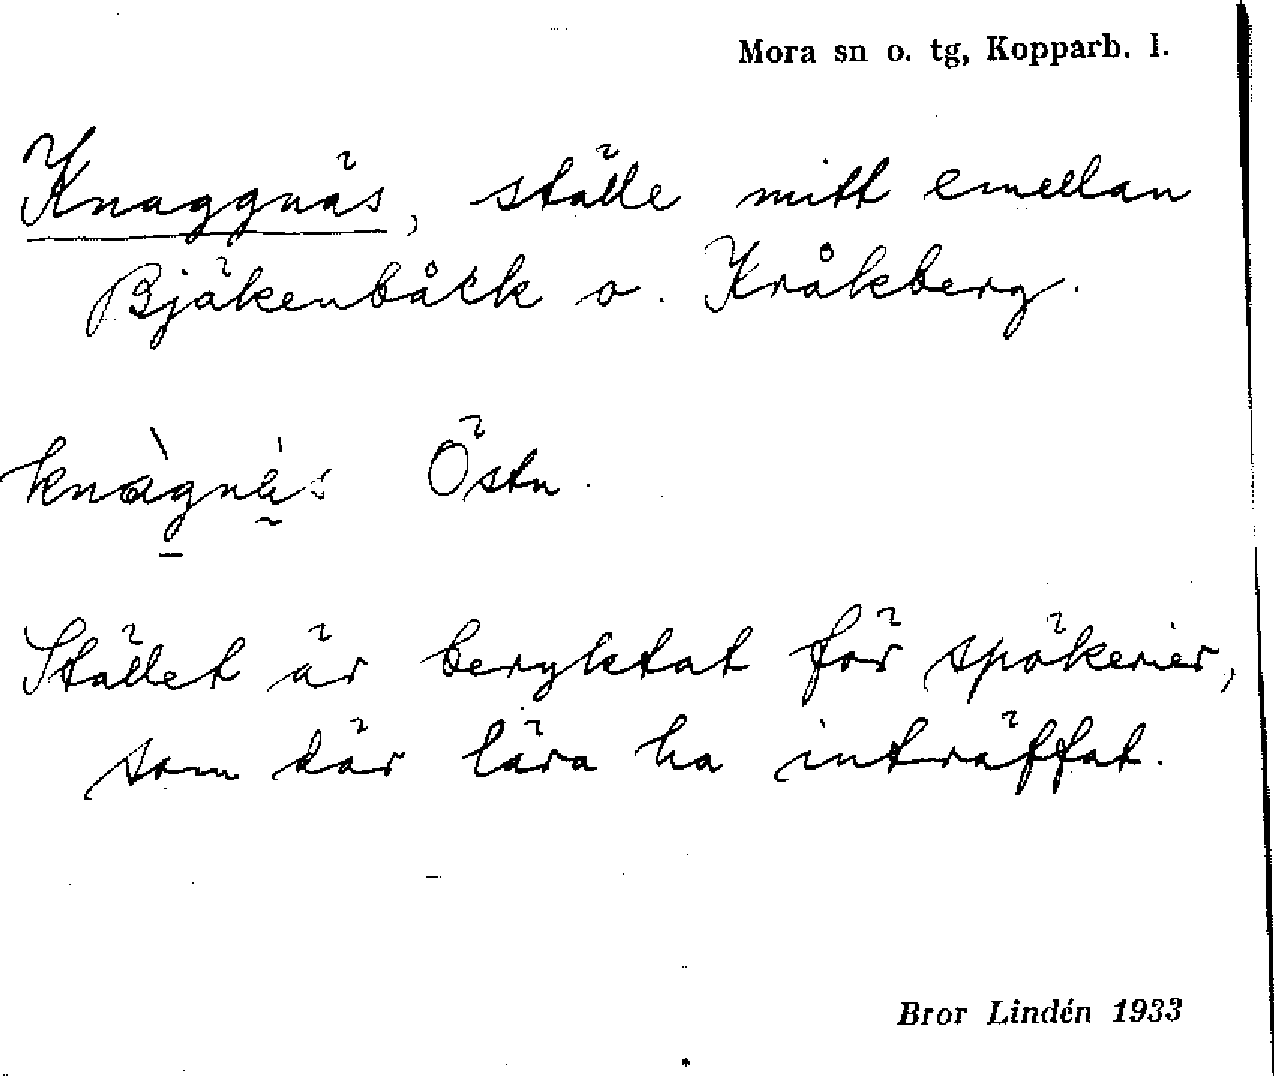 Mora sn o. tg, Kopparb. l.
Knaggnäs, ställe mitt emellan
Bjäkenbåck o. Kråkberg.
knàgnäs Östn.
Stället är beryktat för spökerier,
som där lära ha inträffat.
Bror Lindén 1933